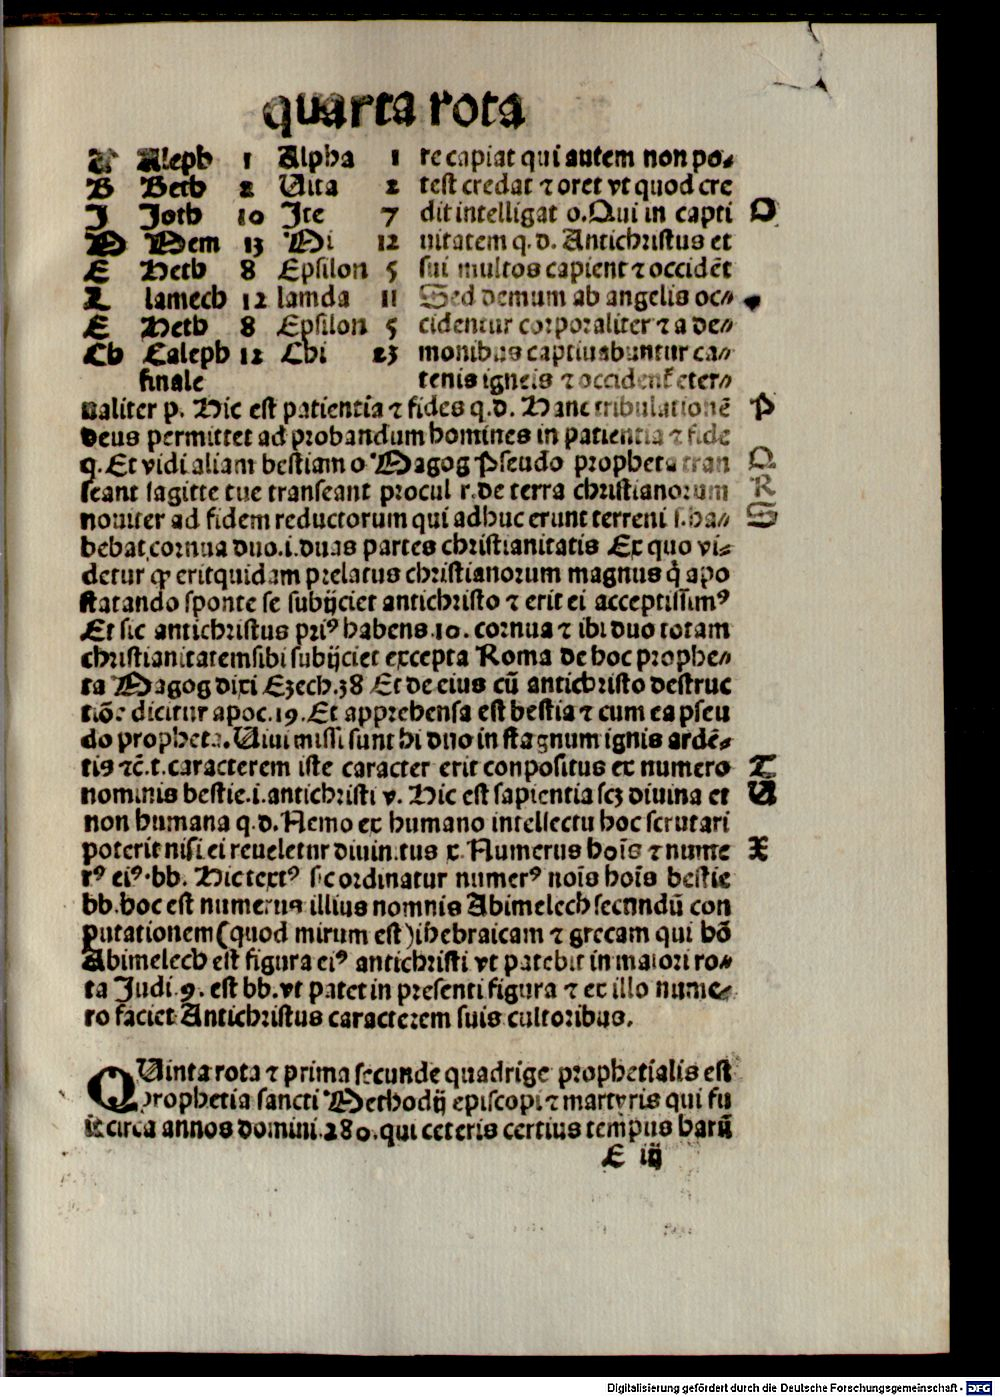 quarta rota
A Aleph 1 Alpha 1 re capiat qui autem non po⸗
B Beth 2 Uita 2 test credat ⁊ oret vt quod cre
J Joth 10 Jte 7 dit intelligat o. Qui in capti O
M Mem 13 Mi 12 uitatem q.d. Antichristus et
E Heth 8 Epsilon 5 sui multos capient ⁊ occidēt
L lamech 12 lamda 11 Sed demum ab angelis oc⸗
E Heth 8 Epsilon 5 cidentur corporaliter ⁊ a de⸗
Ch Caleph 12 Chi 23 monibus captiuabuntur ca⸗
finale tenis igneis ⁊ occident eter⸗
naliter p. Hic est patientia ⁊ fides q.d. Hanc tribulationē P
deus permittet ad probandum homines in patientia ⁊ fide
q. Et vidi aliam bestiam o Magog Pseudo propheta tran Q
seant sagitte tue transeant procul r. de terra christianorum R
nouiter ad fidem reductorum qui adhuc erunt terreni s. ha⸗ S
bebat cornua duo.i.duas partes christianitatis Ex quo vi⸗
detur ꝙ eritquidam prelatus christianorum magnus q̇ apo
statando sponte se subijciet antichristo ⁊ erit ei acceptissimꝰ
Et sic antichristus priꝰ habens.10. cornua ⁊ ibi duo totam
christianitatemsibi subijciet excepta Roma de hoc prophe⸗
ta Magog dixi Ezech.38 Et de eius cū antichristo destruc
tiōe dicitur apoc.19. Et apprehensa est bestia ⁊ cum ea pseu
do propheta. Uiui missi sunt hi duo in stagnum ignis ardē⸗
tis ⁊c̄.t.caracterem iste caracter erit conpositus ex numero T
nominis bestie.i.antichristi v. Hic est sapientia scꝫ diuina et U
non humana q.d. Nemo ex humano intellectu hoc scrutari
poterit nisi ei reueletur diuinitus x. Numerus hoīs ⁊ nume X
rꝰ eiꝰ.bb. Hic textꝰ sic ordinatur numerꝰ noīs hoīs bestie
bb.hoc est numerus illius nomnis Abimelech secundū con
putationem (quod mirum est) ihebraicam ⁊ grecam qui hō
Abimelech est figura eiꝰ antichristi vt patebit in maiori ro⸗
ta Judi.9. est bb. vt patet in presenti figura ⁊ ex illo nume⸗
ro faciet Antichristus caracterem suis cultoribus.
QUinta rota ⁊ prima secunde quadrige prophetialis est
prophetia sancti Methodij episcopi ⁊ martyris qui fu
it circa annos domini.280.qui ceteris certius tempus harū
E iij
Digitalisierung gefördert durch die Deutsche Forschungsgemeinschaft - DFG